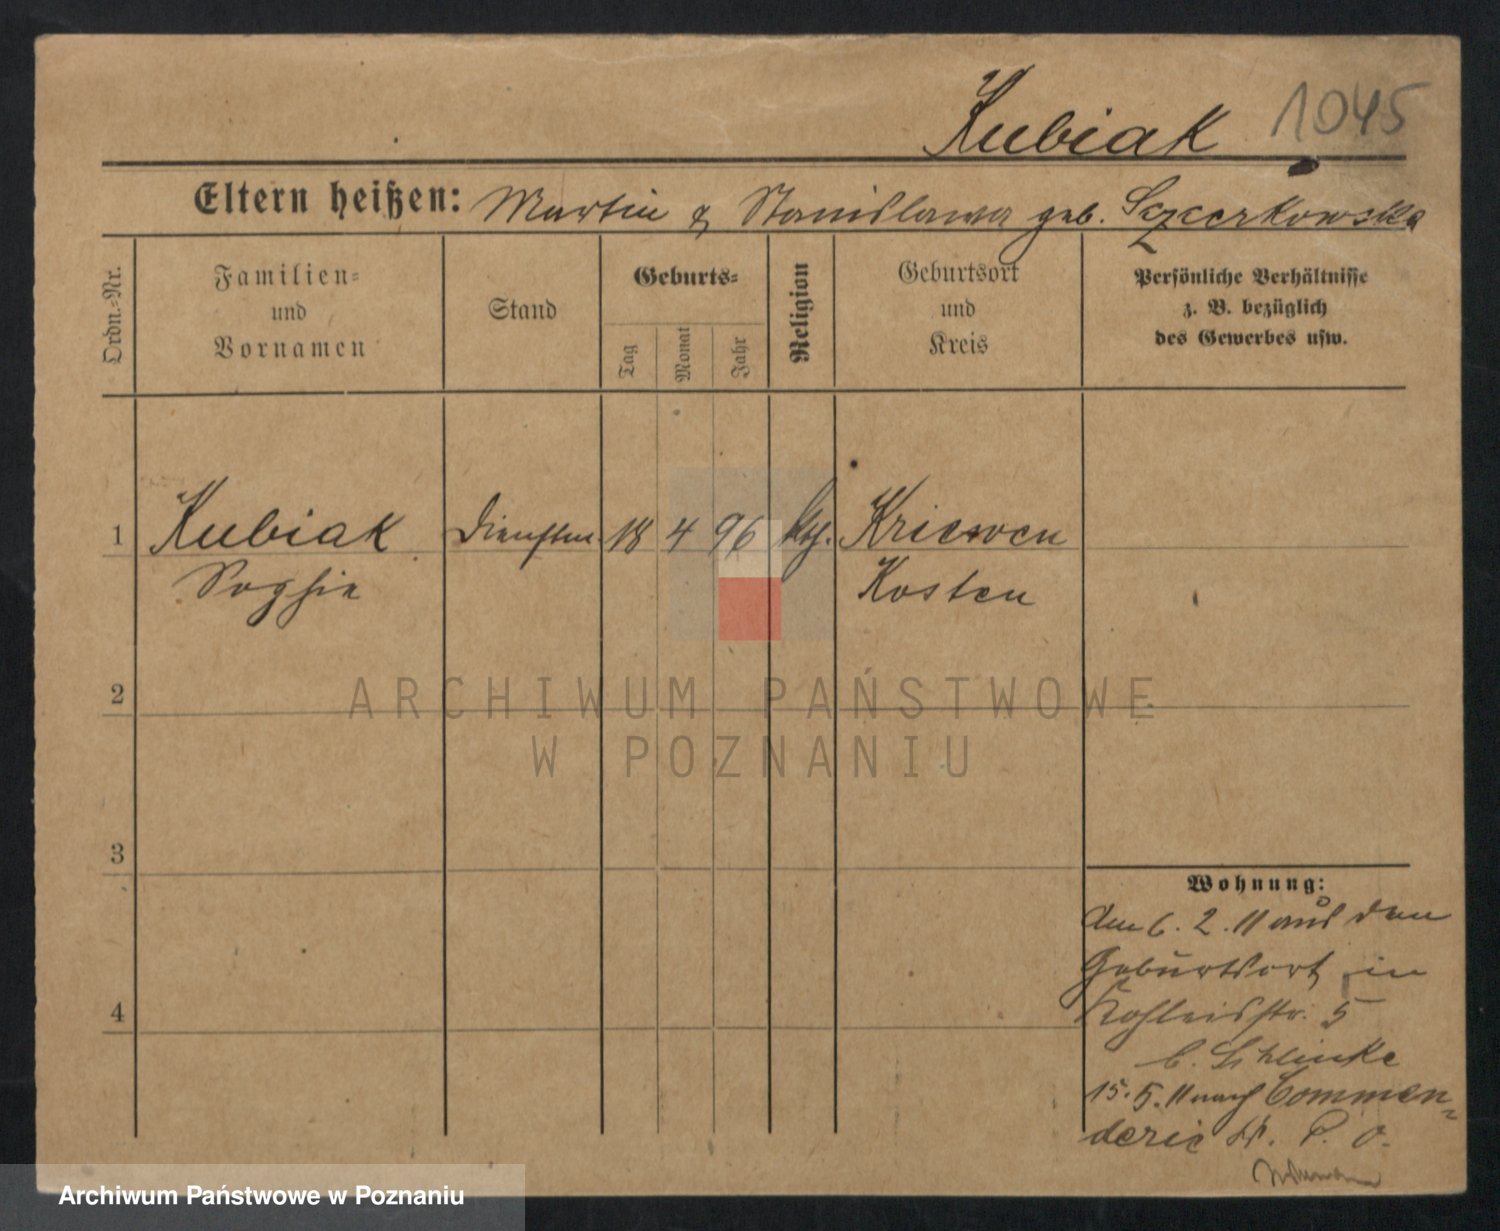 Kubiak 1045
Eltern heißen: Martin & Stanislawa geb. Szczerkowska
Ordn.=Nr.
Familien=
und
Vornamen
Stand
Geburts=
Tag
Monat
Jahr
Religion
Geburtsort
und
Kreis
Persönliche Verhältnisse
z. B. bezüglich
des Gewerbes usw.
1 Kubiak Dienstm. 18 4 96 kth. Kriewen
Sophie Kosten
2
ARCHIWUM PAŃSTWOWE
W POZNANIU
3
Wohnung:
Am 6. 2. 11 aus dem
Geburtsort in
4
str. 5
b. Schlinke
15. 5. 11 nach Commen=
derie Kr. P. O.
Archiwum Państwowe w Poznaniu